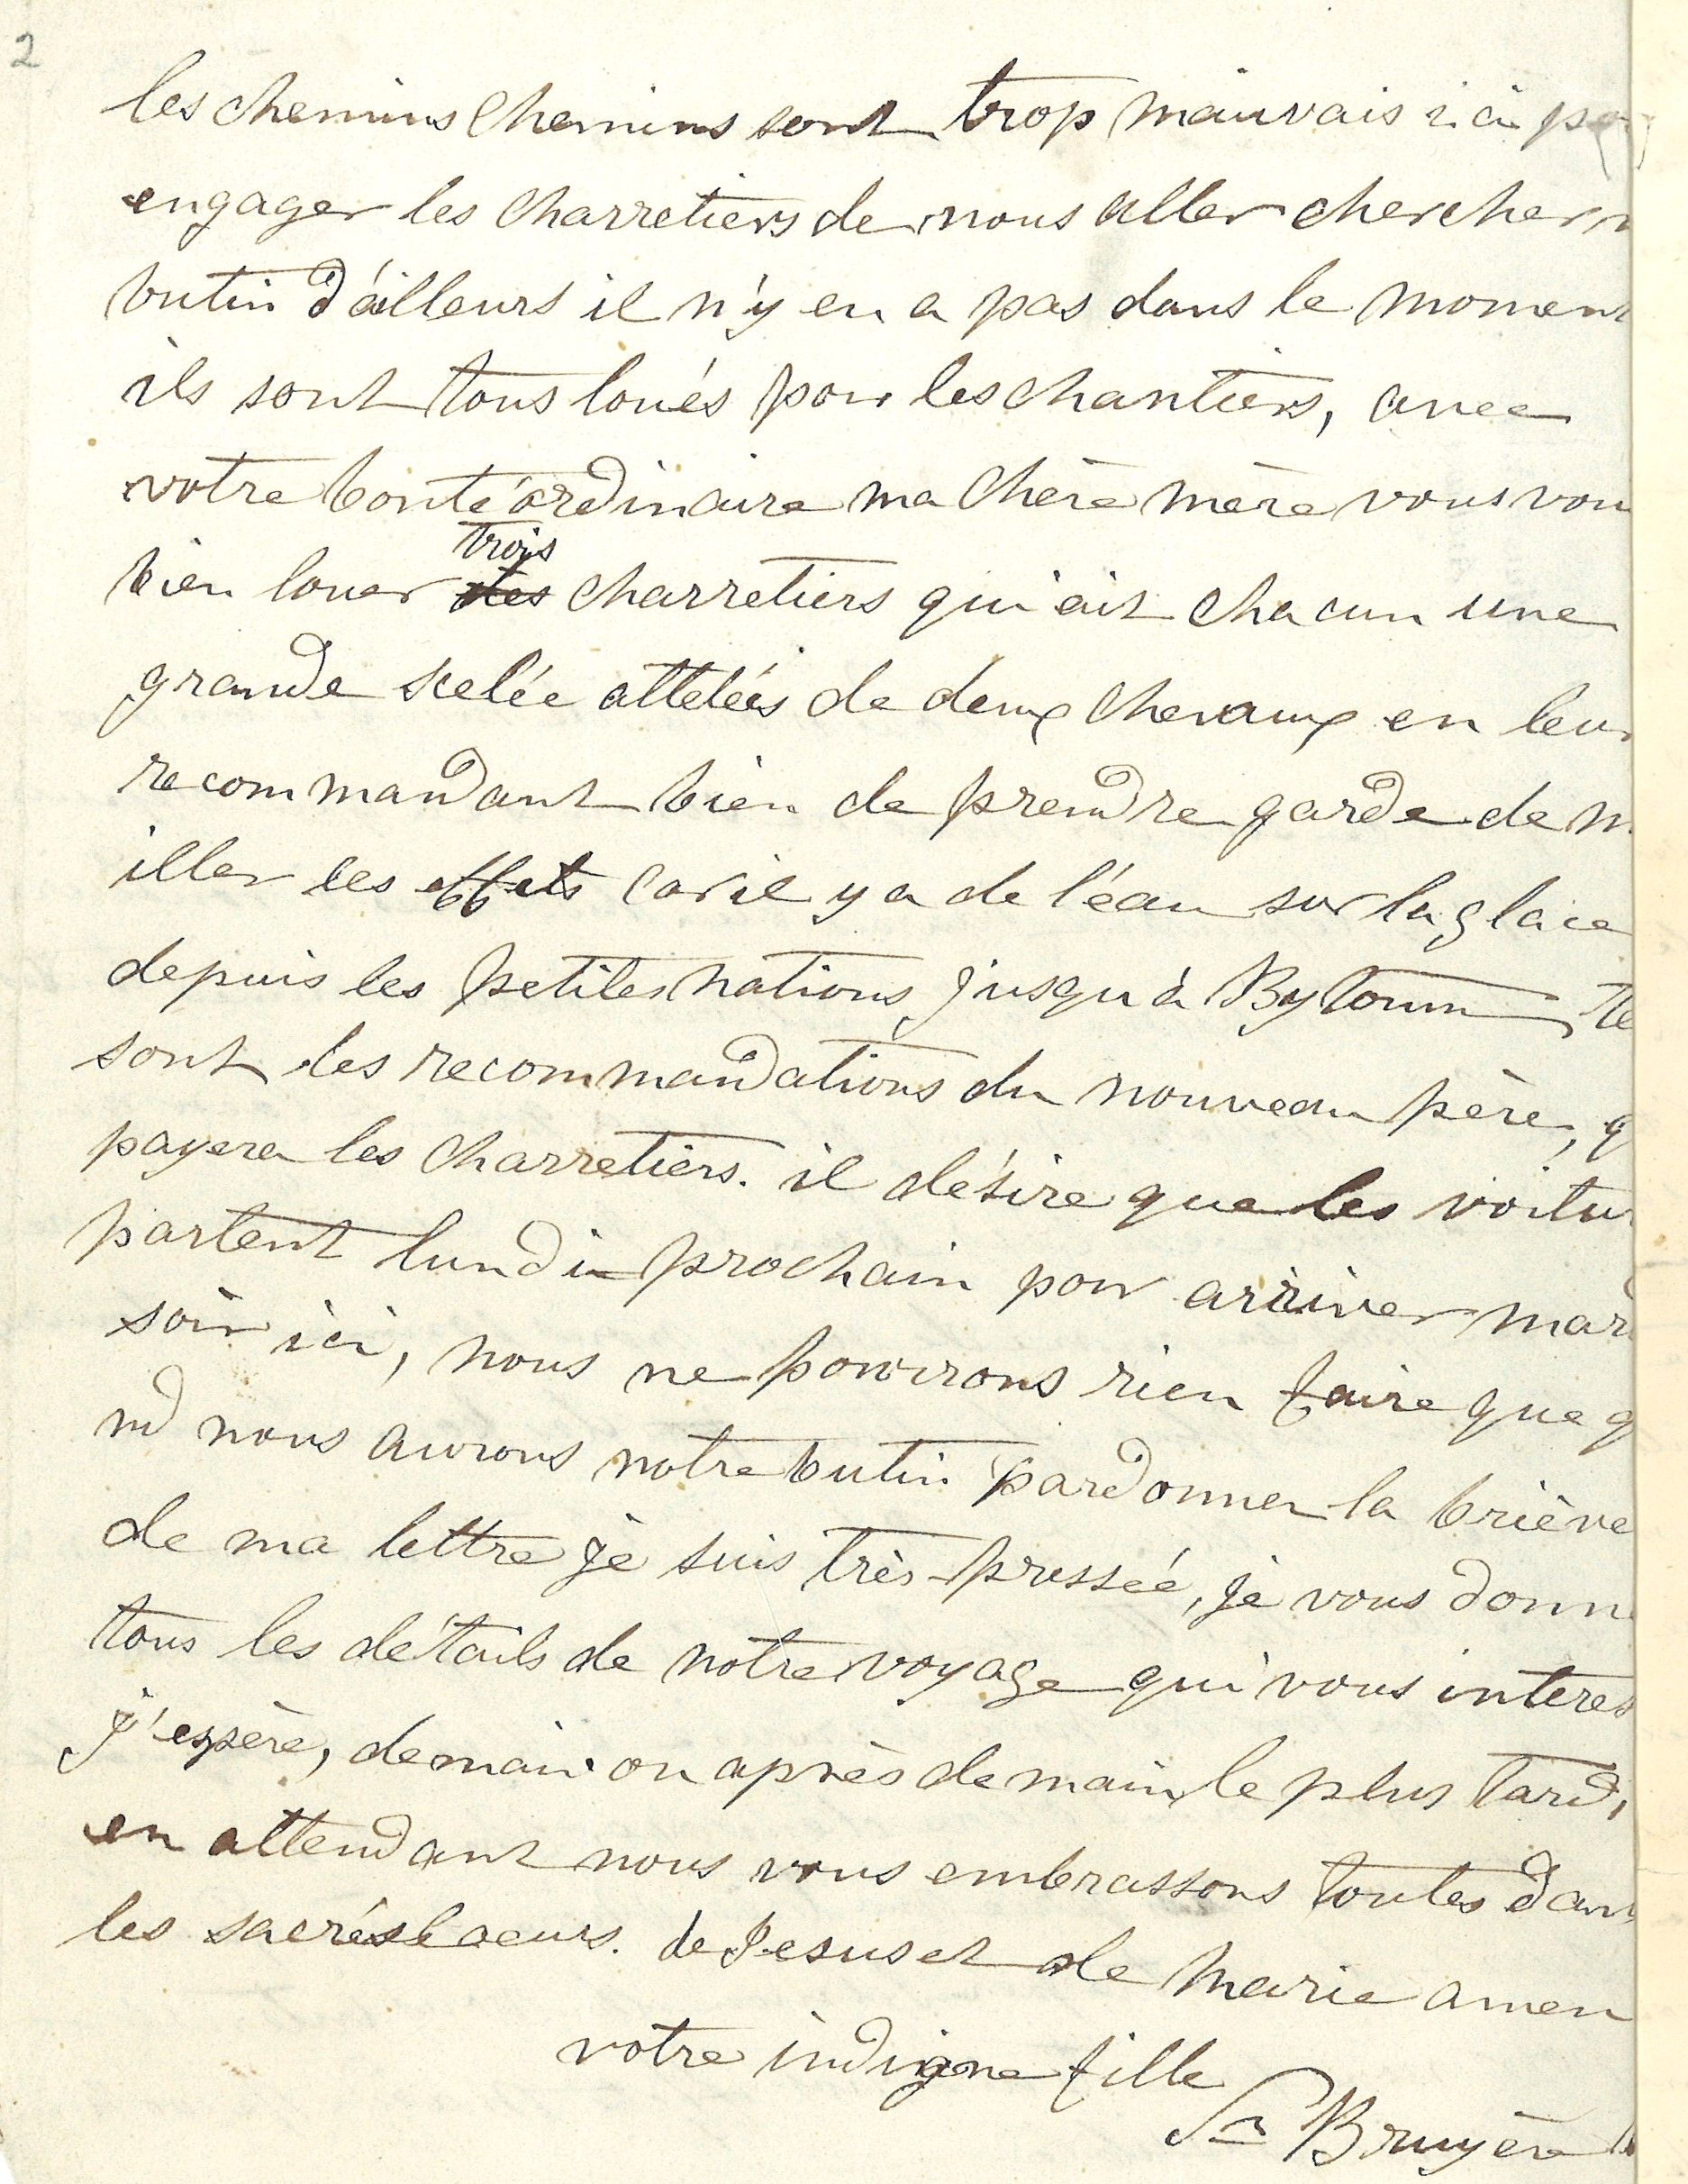 2
les chemins chemins sont trop mauvais ici po
engager les charretiers de nous aller chercher n
butin d'ailleurs il n'y en a pas dans le moment
ils sont tous loués pour les chantiers, avec
votre bonté ordinaire ma chère mère vous vou
trois
bien louer des charretiers qui ait chacun une
grande slelée attelées de deux chevaux en leur
recommandant bien de prendre garde de m
iller les effets car il y a de l'éau sur la glace
depuis les petites nations jusqu'à Bytown te
sont les recommandations du nouveau père, q
payera les charretiers. il désire que les voitur
partent lundi prochain pour arriver mar
soir ici, nous ne pourrons rien faire que q
nd nous aurons notre butin pardonner la briève
de ma lettre je suis très pressée, je vous donn
tous les détails de notre voyage qui vous interes
j'espère, demain ou après demain le plus tard,
en attendant nous vous embrassons toutes dans
les sacrés coeurs. de Jesus et de Marie amen
votre indigne fille
Sr Bruyère